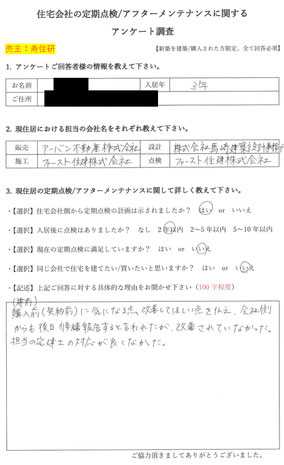 住宅会社の定期点検/アフターメンテナンスに関する
アンケート調査
売主：寿住研
【新築を建築/購入された方限定、全て回答必須】
1. アンケートご回答者様の情報を教えて下さい。
お名前 入居年 3年
ご住所
2. 現住居における担当の会社名をそれぞれ教えて下さい。
販売 アーバン不動産株式会社 設計 株式会社馬崎建築設計事務所
施工 ファースト住建株式会社 点検 ファースト住建株式会社
3. 現住居の定期点検/アフターメンテナンスに関して詳しく教えて下さい。
・【選択】住宅会社側から定期点検の計画は示されましたか？ はい or いいえ
・【選択】入居後に点検はありましたか？ なし 2年以内 2～5年以内 5～10年以内
・【選択】現在の定期点検に満足していますか？ はい or いいえ
・【選択】同じ会社で住宅を建てたい/買いたいと思いますか？ はい or いいえ
・【記述】上記ご回答に対する具体的な理由をお聞かせ下さい（100字程度）
購入前(契約前)に気になる点、改善してほしい点を伝え、会社側
からも後日修繕報告すると言われたが、改善されていなかった。
担当の建築士の対応が良くなかった。
ご協力頂きましてありがとうございました。